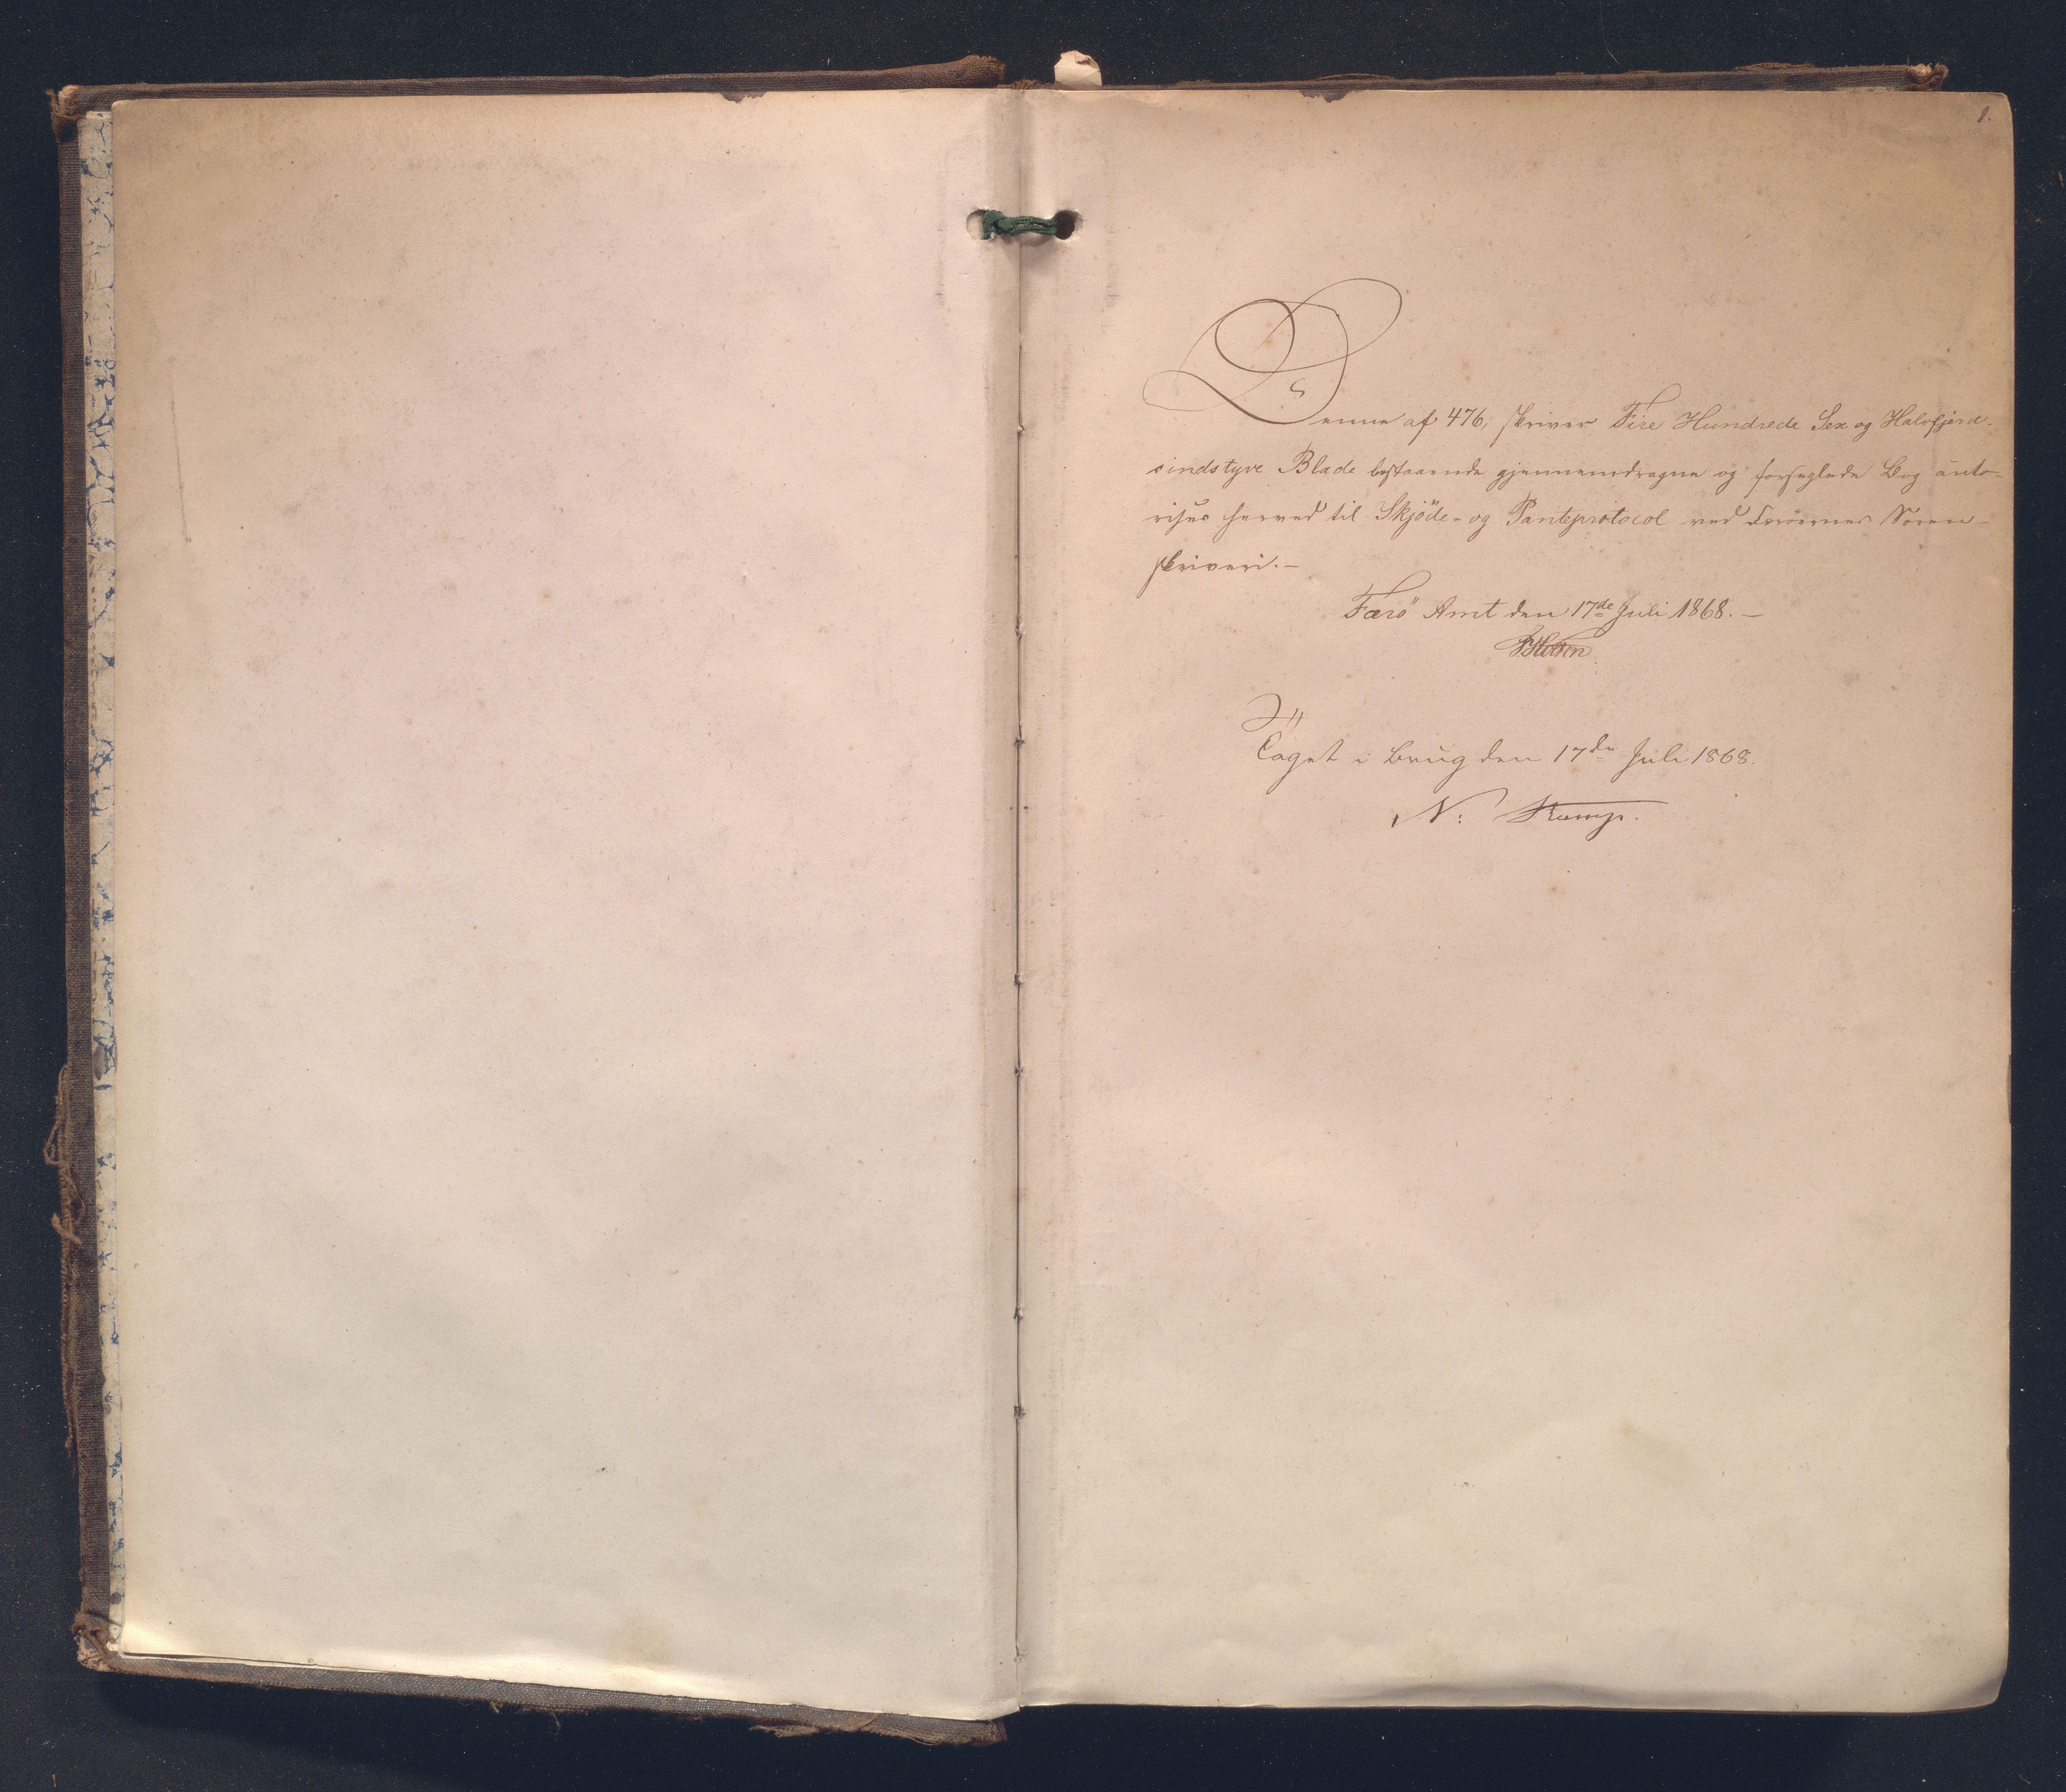 1.
Denne af 476, skriver Fire Hundrede Sex og Halvfjerd-
sindstyve Blade bestaaende gjennemdragne og forseglede Bog auto-
riseres herved til Skjöde- og Panteprotocol ved Færöernes Soren-
skriveri.—
Færö Amt den 17de Juli 1868.—
HHolten
Taget i Brug den 17de Juli 1868.
N: